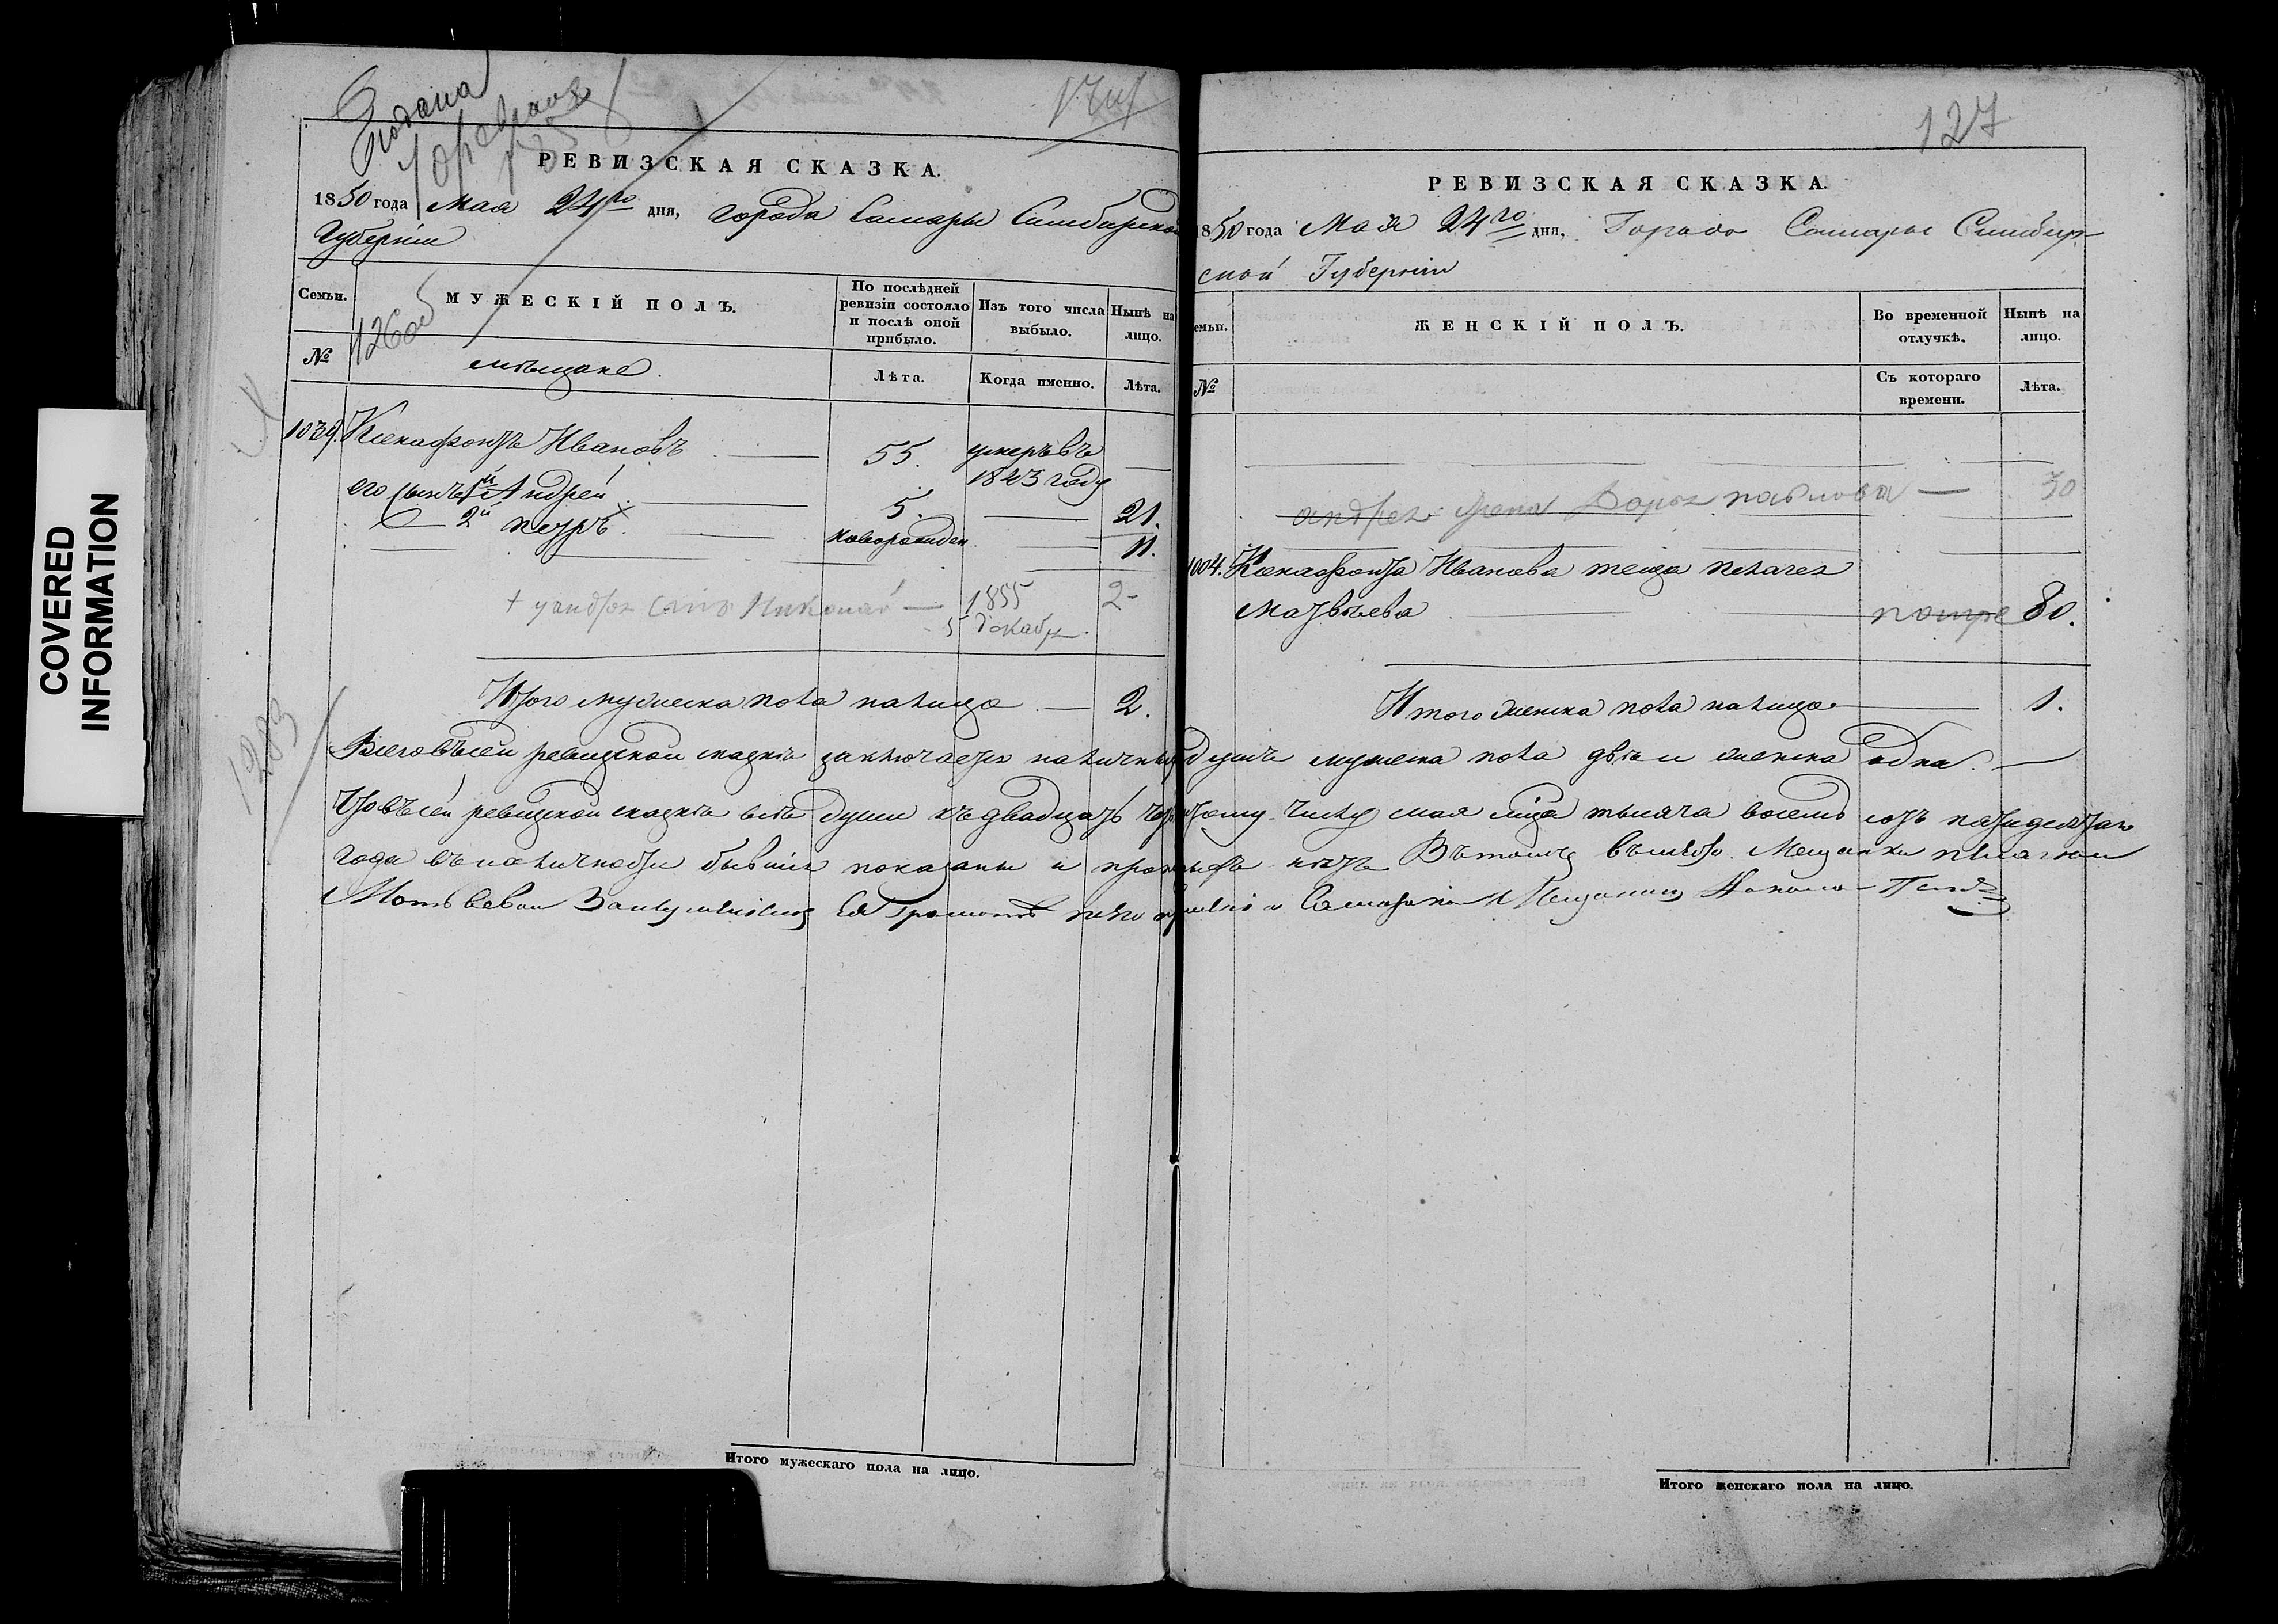 Подана
127
РЕВИЗСКАЯ СКАЗКА.
1850 года Мая 24го дня, города Самары Симбирской
Губерніи
Семьи.
МУЖЕСКІЙ ПОЛЪ.
По послѣдней ревизіи состояло и послѣ оной прибыло.
Изъ того числа выбыло.
Нынѣ на лицо.
№
1260
мѣщане.
Лѣта.
Когда именно.
Лѣта.
1039. Ксенофонтъ Ивановъ 55. умеръ въ
1843 году
его сынъ 1й Андрей 5. 21.
2й петръ. новорожден. 11.
+ у андрея сынъ Николай — 1855 2-
5 декабря
Итого мужеска пола налицо — 2.
1283
РЕВИЗСКАЯ СКАЗКА.
1850 года Мая 24го дня, Города Самары Симбир-
ской Губерніи
Семьи.
ЖЕНСКІЙ ПОЛЪ.
Во временной отлучкѣ.
Нынѣ на лицо.
№
Съ котораго времени.
Лѣта.
андрея жена Дарья павлова — 30
1004. Ксенофонта Иванова теща пелагея
Матвѣева 80.
Итого женска пола налицо 1.
Всего въ сей ревизской сказкѣ заключается наличныхъ душъ мужеска пола двѣ и женска одна. —
Что въ сей ревизской сказкѣ всѣ души къ двадцать четвертому числу мая мца тысяча восемь сотъ пятидесятаго
года въ наличности бывшія показаны и прописныхъ нѣтъ Въ томъ вместо Мещанки пелагеи
Матвевой За неуменіемъ Ея Грамотѣ Самарской Мещанинъ
Итого мужескаго пола на лицо.
Итого женскаго пола на лицо.
COVERED
INFORMATION